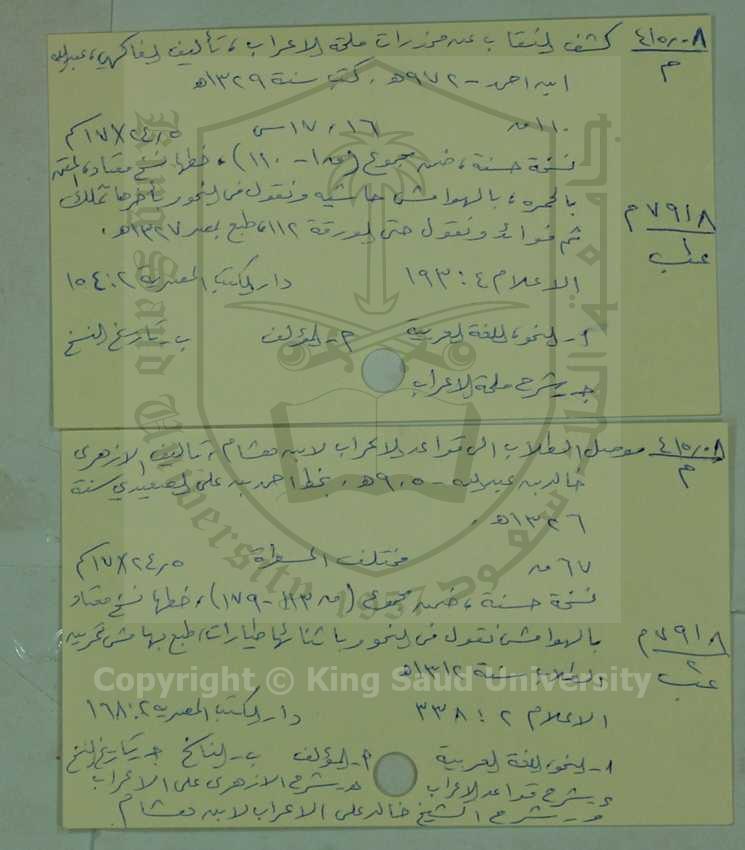 ٤١٥٫٠٨ كشف النقاب عن مخدرات ملحة الاعراب، تأليف الفاكهي، عبدالله
م ابن احمد - ٩٧٢هـ. كتب سنة ١٣٢٩هـ
١١٠ ق ١٦، ١٧ س ٢٤٫٥×١٧سم
نسخة حسنة، ضمن مجموع (ق ١ - ١١٠)، خطها نسخ معتاد، المتن
بالحمرة، بالهوامش حاشيه ونقول في النحور بآخرها تملك
٧٩١٨ م ثم فوائد ونقول حتى الورقة ١١٢، طبع بمصر ١٣٢٧هـ.
الاعلام ٤: ١٩٣ دار الكتب المصريه ٢: ١٥٤
١- النحو، اللغة العربية أ- المؤلف ب- تاريخ النسخ
ج- شرح ملحة الاعراب
٤١٥٫٠٨ موصل الطلاب الى قواعد الاعراب لابن هشام، تأليف الازهرى
م خالد بن عبدالله - ٩٠٥هـ. بخط احمد بن على الصعيدي سنة
١٣٢٦هـ.
٦٧ ق مختلف المسطرة ٢٤٫٥×١٧سم
نسخة حسنة، ضمن مجموع (ق ١١٣ - ١٧٩)، خطها نسخ معتاد
٧٩١٨ م بالهوامش نقول في النحور باثنائها طيارات، طبع بهامش تمرين
٢ الطلاب سنة ١٣١٢هـ
الاعلام ٢: ٣٣٨ دار الكتب المصريه ٢: ١٦٨
١- النحو، اللغة العربية أ- المؤلف ب- الناسخ ج- تاريخ النسخ
د- شرح قواعد الاعراب هـ- شرح الازهرى على الاعراب
و- شرح الشيخ خالد على الاعراب لابن هشام
King Saud University
1957
جامعة الملك سعود
Copyright © King Saud University